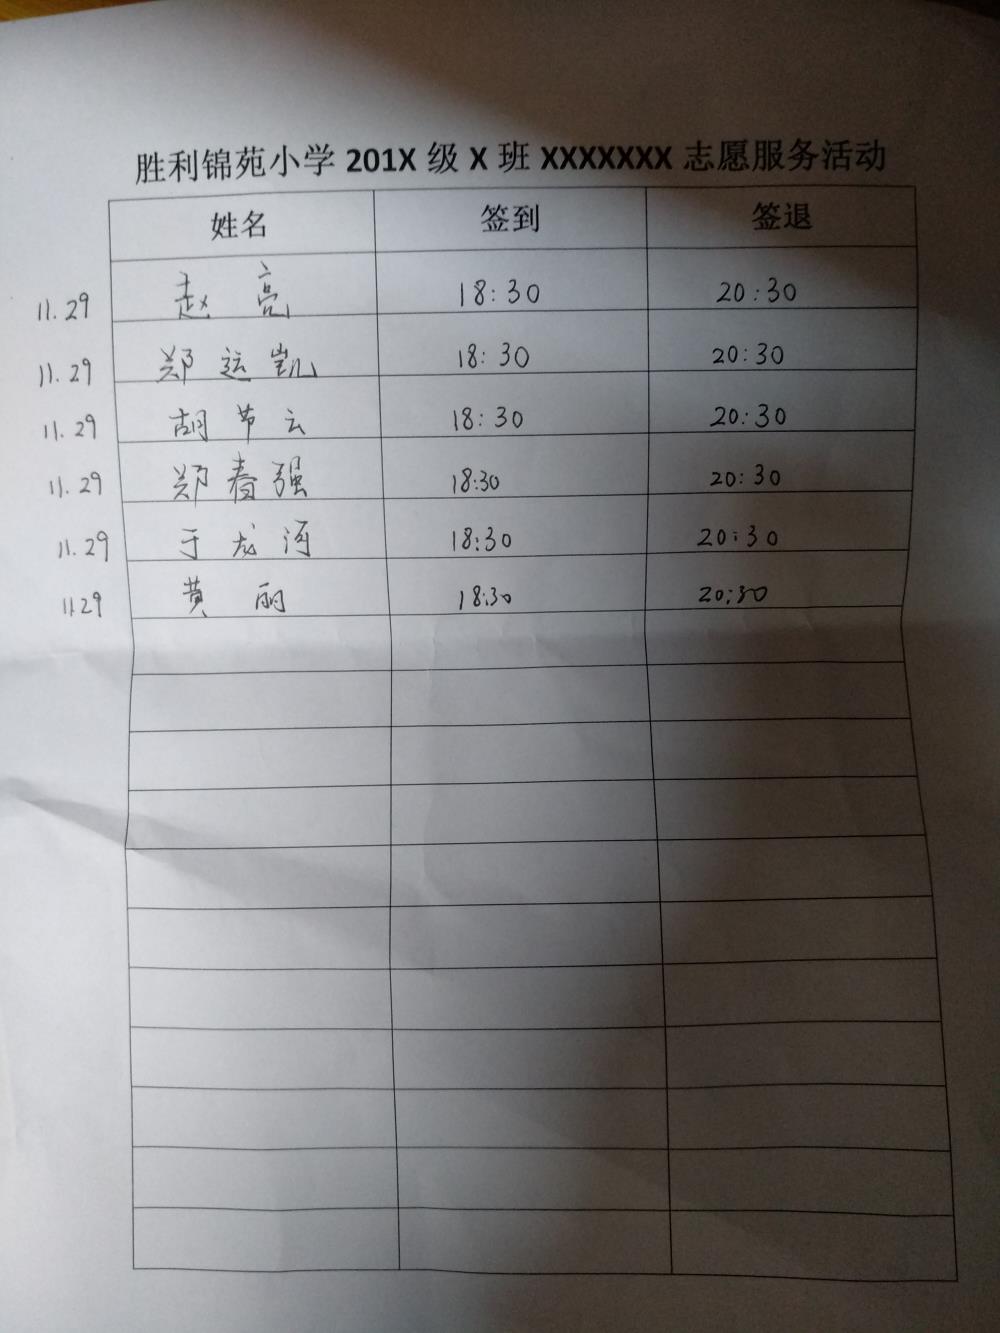 胜利锦苑小学201X级X班XXXXXXX志愿服务活动
姓名 签到 签退
11.29 赵亮 18:30 20:30
11.29 郑运凯 18:30 20:30
11.29 胡节云 18:30 20:30
11.29 郑春强 18:30 20:30
11.29 于龙河 18:30 20:30
11.29 黄丽 18:30 20:30